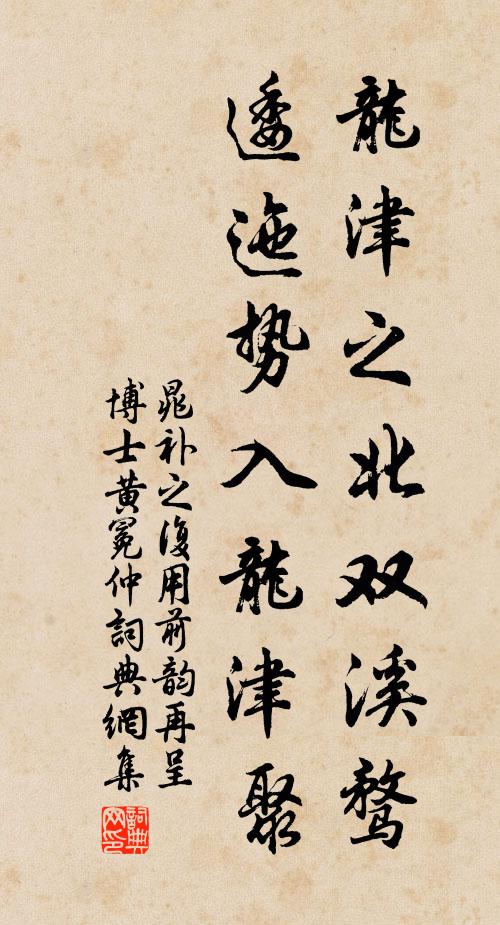 龍津之北双溪鹜
逶迤势入龍津聚
晁补之復用前韵再呈
博士黄冕仲詞典網集
詞典网印